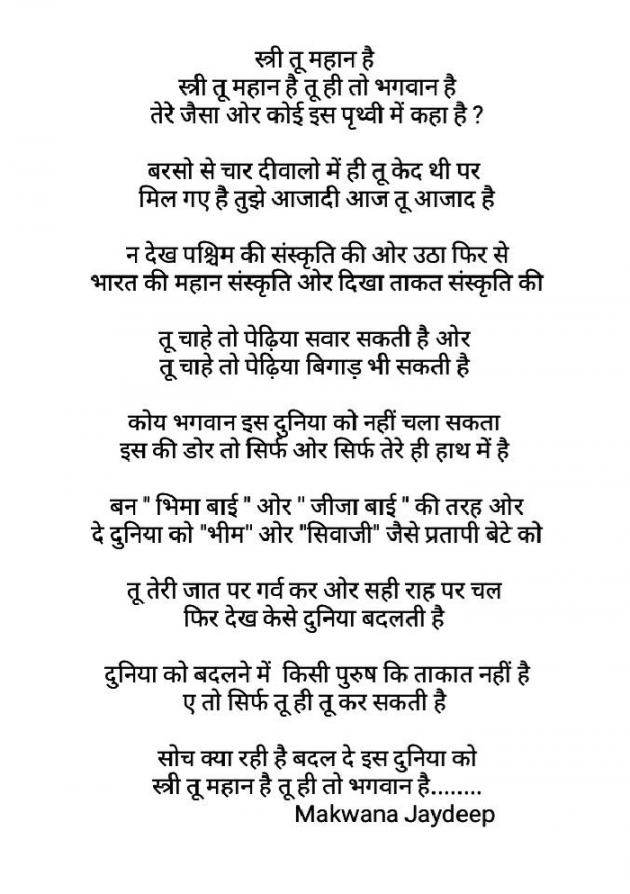 स्त्री तू महान है
स्त्री तू महान है तू ही तो भगवान है
तेरे जैसा ओर कोई इस पृथ्वी में कहा है ?
बरसो से चार दीवालो में ही तू केद थी पर
मिल गए है तुझे आजादी आज तू आजाद है
न देख पश्चिम की संस्कृति की ओर उठा फिर से
भारत की महान संस्कृति ओर दिखा ताकत संस्कृति की
तू चाहे तो पेढ़िया सवार सकती है ओर
तू चाहे तो पेढ़िया बिगाड़ भी सकती है
कोय भगवान इस दुनिया को नहीं चला सकता
इस की डोर तो सिर्फ ओर सिर्फ तेरे ही हाथ में है
बन " भिमा बाई " ओर " जीजा बाई " की तरह ओर
दे दुनिया को "भीम" ओर "सिवाजी" जैसे प्रतापी बेटे को
तू तेरी जात पर गर्व कर ओर सही राह पर चल
फिर देख केसे दुनिया बदलती है
दुनिया को बदलने में किसी पुरुष कि ताकात नहीं है
ए तो सिर्फ तू ही तू कर सकती है
सोच क्या रही है बदल दे इस दुनिया को
स्त्री तू महान है तू ही तो भगवान है........
Makwana Jaydeep